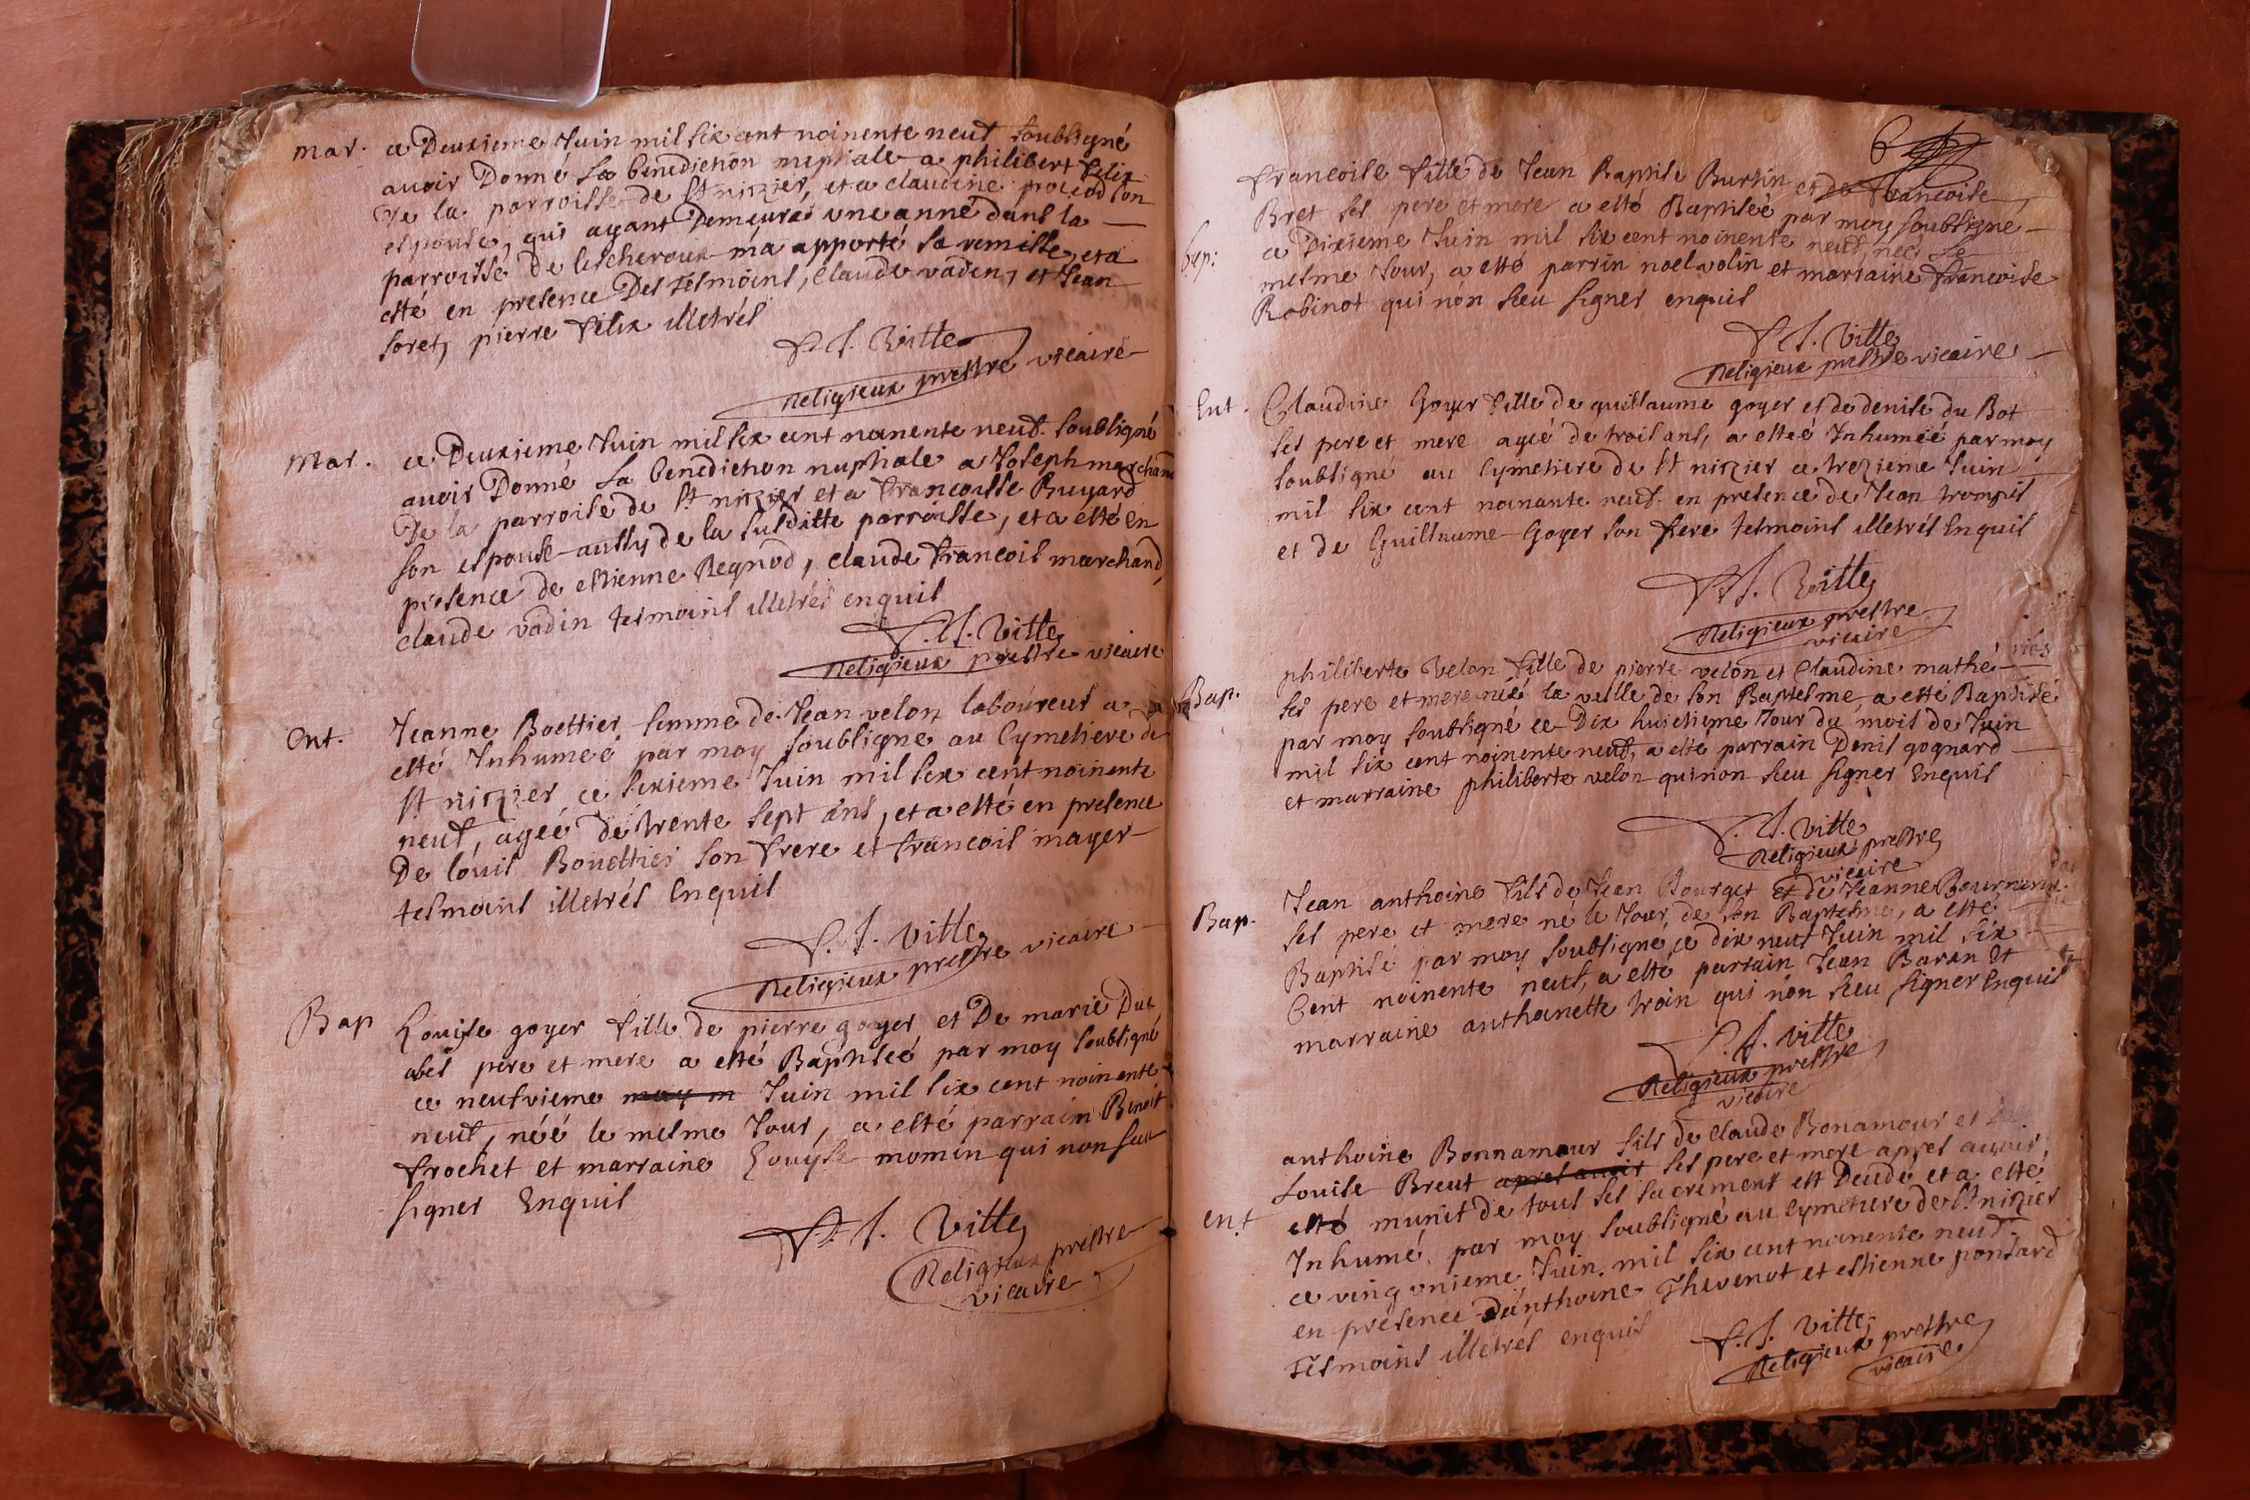 mar. ce Deuxieme Juin mil six cent noinente neuf soubsigné
avoir Donné la benediction nuptiale a philibert felix
De la parroisse de St nizier, et a claudine
espouse, qui ayant Demeuré une anné dans la
parroisse de lescheroux m'a apporté sa remisse, et a
esté en presence Des tesmoins, claude vadin, et Jean
soret, pierre felix illetrés
f. J. Vitte
Religieux prestre vicaire
Mar. ce Deuxieme Juin mil six cent noinente neuf soubsigné
avoir Donné la benediction nuptiale a Joseph marchand
De la parroise de St nizier et a francoisse Buyard
son espouse aussy de la susditte parroisse, et a esté en
presence de estienne Regnod, claude francois marchand,
claude vadin tesmoins illetrés enquis
f. J. Vitte
Religieux prestre vicaire
Ent. Jeanne Boettier femme de Jean velon laboureur a
esté Inhumeé par moy soubsigné au Cymetiere de
St nizier, ce sixieme Juin mil six cent noinente
neuf, ageé de trente sept ans, et a esté en presence
De louis Bouettier son frere et francois mayer
tesmoins illetrés Enquis
f. J. Vitte
Religieux prestre vicaire
Bap Louise goyer fille de pierre goyer et De marie Duc
ses pere et mere a esté Baptiseé par moy soubsigné
ce neufvieme may m Juin mil six cent noinente
neuf, néé le mesme Jour, a esté parrain Benoit
frochet et marraine Louyse momin qui non sceu
signer Enquis
f. J. Vitte
Religieux prestre
vicaire
6
francoise fille de Jean Baptiste Burtin et de francoise
Bret ses pere et mere a esté Baptiseé par moy soubsigné
bap: ce Dixieme Juin mil six cent noinente neuf, neé le
mesme Jour, a esté parrin noel volin et marraine francoise
Robinot qui non sceu signer enquis
f. J. Vitte
Religieux prestre vicaire
Ent. Claudine Goyer fille de guillaume goyer et de denise du Bot
ses pere et mere ageé de trois ans, a esteé Inhumeé par moy
soubsigné au Cymetiere de St nizier ce trezieme Juin
mil six cent noinante neuf en presence de Jean trompit
et de Guillaume Goyer son frere tesmoins illetrés Enquis
f. J. Vitte
Religieux prestre
vicaire
philiberte velon fille de pierre velon et Claudine mathé
Bap. ses pere et mere neé la veille de son Baptesme a esté Baptisé
par moy soubsigné ce Dix huictieme Jour du mois de Juin
mil six cent noinente neuf, a esté parrain Denis gognard
et marraine philiberte velon qui non sceu signer Enquis
f. J. Vitte
Religieux prestre
vicaire
Jean anthoine fils de Jean Bourget et de Jeanne
Bap. ses pere et mere né le Jour de son Baptesme, a esté
Baptisé par moy soubsigné, ce dix neuf Juin mil six
Cent noinente neuf, a esté parrain Jean Baran Et
marraine anthoinette troin qui non sceu signer Enquis
f. J. Vitte
Religieux prestre
vicaire
anthoine Bonnamour fils de claude Bonamour et de
Louise Breut apres avoir ses pere et mere apres avoir
ent esté munit de tous ses sacrement est Decedé et a esté
Inhumé par moy soubsigné au Cymetiere de St nizier
ce ving unieme Juin mil six cent noinente neuf
en presence D'anthoine Thevenot et estienne ponsard
Tesmoins illetrés enquis
f. J. Vitte
Religieux prestre
vicaire